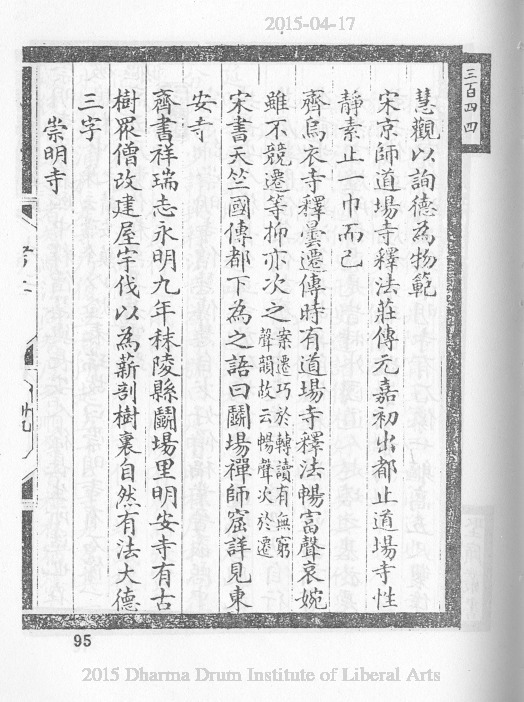 2015-04-17
三百四四
慧觀以詢德為物範
宋京師道場寺釋法莊傳元嘉初出都止道場寺性
靜素止一巾而已
齊烏衣寺釋曇遷傳時有道場寺釋法暢富聲哀婉
雖不競遷等抑亦次之案遷巧於轉讀有無窮
聲韻故云暢聲次於遷
宋書天竺國傳都下為之語曰鬬場禪師窟詳見東
安寺
齊書祥瑞志永明九年秣陵縣鬬場里明安寺有古
樹眾僧改建屋宇伐以為薪剖樹裏自然有法大德
三字
崇明寺
95
2015 Dharma Drum Institute of Liberal Arts